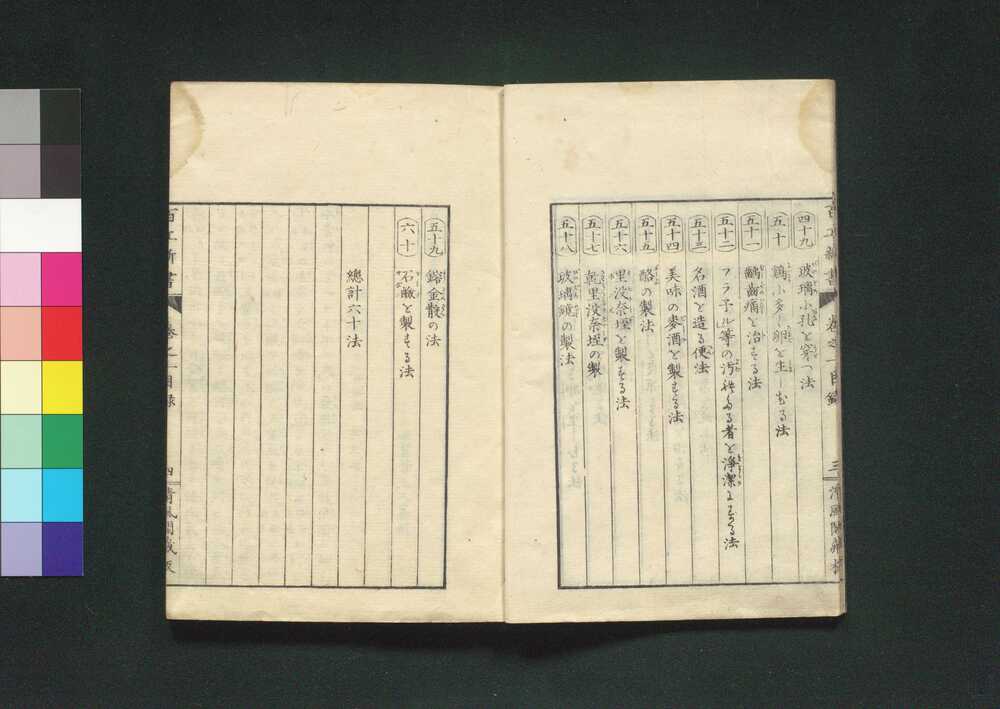 四十九 玻璃小孔を穿つ法
五十 鷄小多く卵を生しむる法
五十一 齲齒痛を治する法
五十二 フラ子ル等の汚れたる者を淨潔にする法
五十三 名酒を造る便法
五十四 美味の麥酒を製する法
五十五 酪の製法
五十六 里没奈埵を製する法
五十七 乾里没奈埵の製
五十八 玻璃鏡の製法
百工新書 卷之一目錄 三 清風閣藏板
五十九 鎔金散の法
六十 石鹼を製する法
總計六十法
百工新書 卷之一目錄 四 清風閣藏板